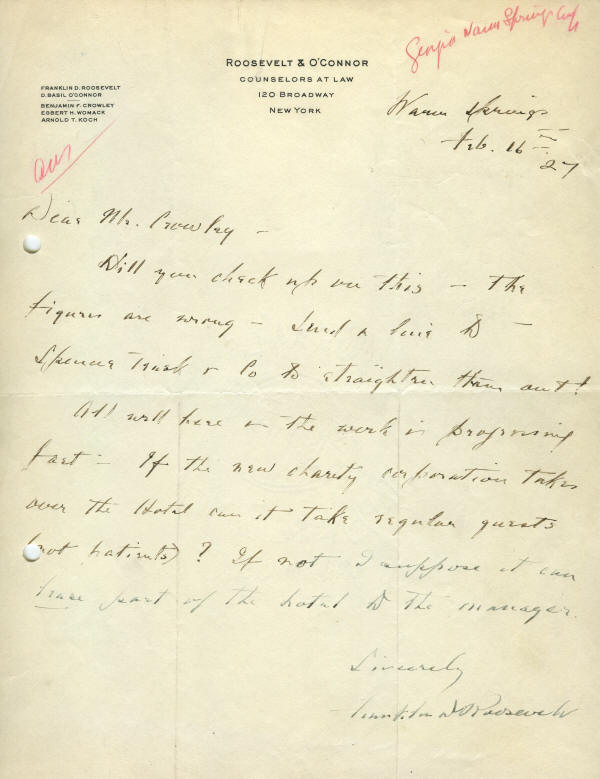 Georgia Warm Springs
ROOSEVELT & O'CONNOR
COUNSELORS AT LAW
120 BROADWAY
NEW YORK
FRANKLIN D. ROOSEVELT
D. BASIL O'CONNOR
BENJAMIN F. CROWLEY
EGBERT H. WOMACK
ARNOLD T. KOCH
Warm Springs
Feb. 16
27
Dear Mr. Crowley –
Will you check up on this – the
figures are wrong – Send a line to
Spencer Trask & Co to straighten them out!
All well here & the work is progressing
fast – If the new charity corporation takes
over the Hotel can it take regular guests
(not patients) ? If not I suppose it can
lease part of the hotel to the manager.
Sincerely
Franklin D Roosevelt